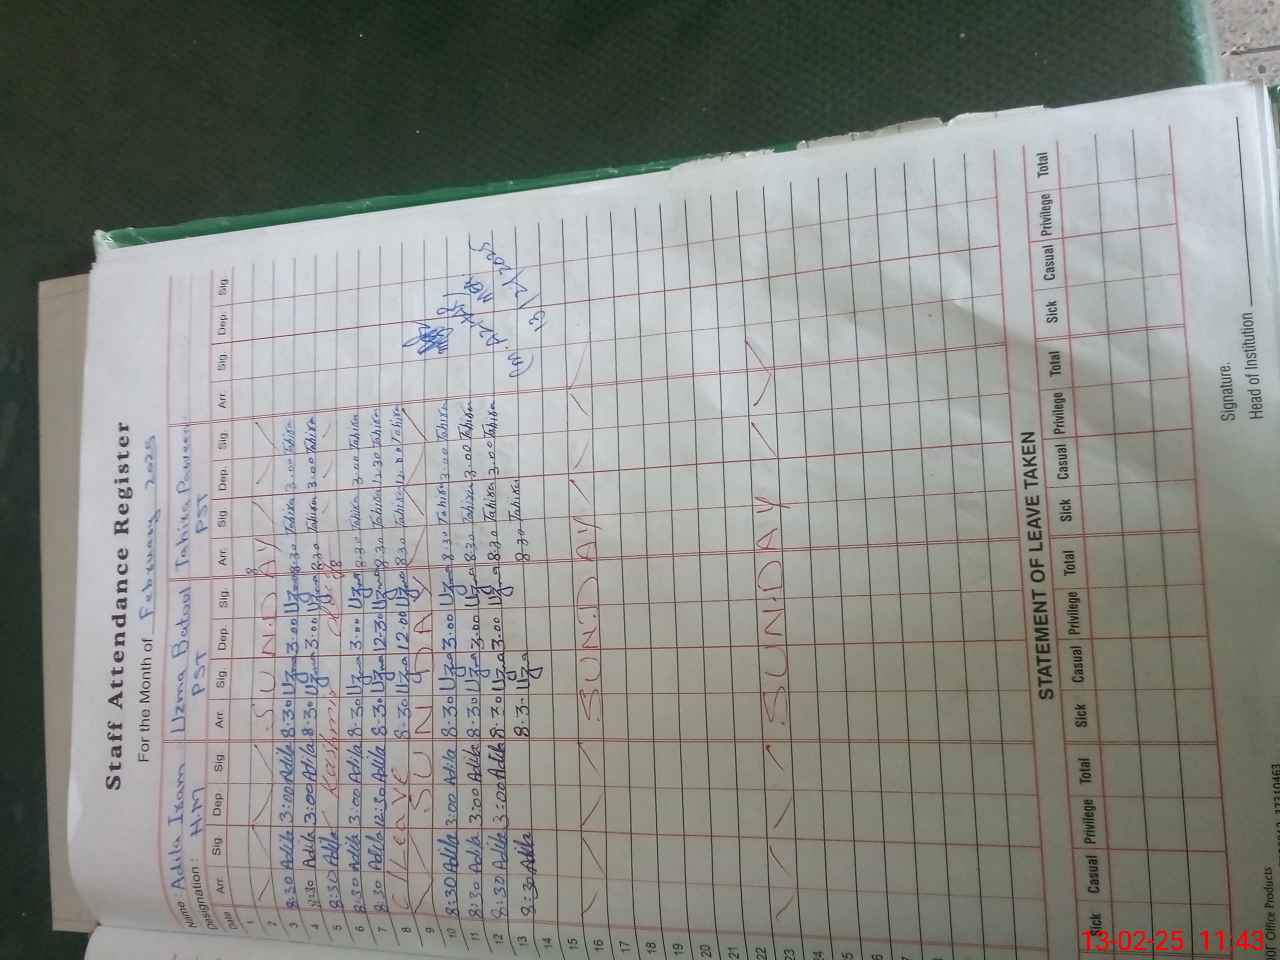 Staff Attendance Register
For the Month of February 2025
Name: Adila Ikram Uzma Batool Tahira Parveen
Designation: H.M PST PST
Date Arr. Sig Dep. Sig Arr. Sig Dep. Sig. Arr. Sig Dep. Sig Arr. Sig. Dep. Sig
1
2 SUNDAY
3 8:30 Adila 3:00 Adila 8:30 Uzma 3:00 Uzma 8:30 Tahira 3:00 Tahira
4 8:30 Adila 3:00 Adila 8:30 Uzma 3:00 Uzma 8:30 Tahira 3:00 Tahira
5 8:30 Adila Kashmir
6 8:30 Adila 3:00 Adila 8:30 Uzma 3:00 Uzma 8:30 Tahira 3:00 Tahira
7 8:30 Adila 12:30 Adila 8:30 Uzma 12:30 Uzma 8:30 Tahira 12:30 Tahira
8 C/Leave 8:30 Uzma 12:00 Uzma 8:30 Tahira 12:00 Tahira
9 SUNDAY
10 8:30 Adila 3:00 Adila 8:30 Uzma 3:00 Uzma 8:30 Tahira 3:00 Tahira
11 8:30 Adila 3:00 Adila 8:30 Uzma 3:00 Uzma 8:30 Tahira 3:00 Tahira
12 8:30 Adila 3:00 Adila 8:30 Uzma 3:00 Uzma 8:30 Tahira 3:00 Tahira
13 8:30 Adila 8:30 Uzma 8:30 Tahira 13/2/2025
14
15
16 SUNDAY
17
18
19
20
21
22
23 SUNDAY
STATEMENT OF LEAVE TAKEN
Sick Casual Privilege Total Sick Casual Privilege Total Sick Casual Privilege Total Sick Casual Privilege Total
Signature.
Head of Institution
Office Products
13-02-25 11:43